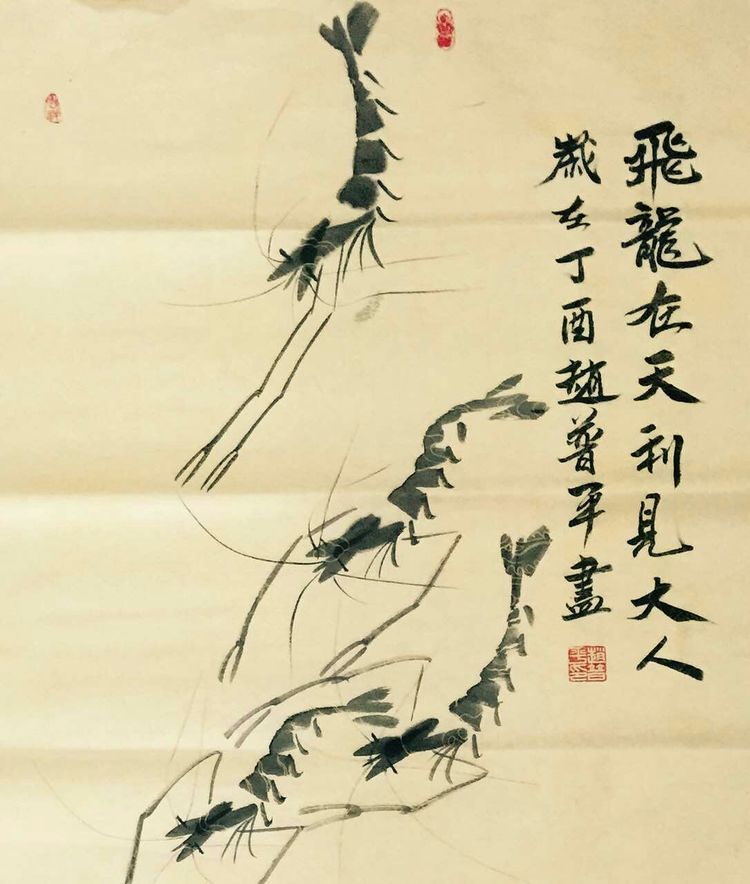 飛龍在天利見大人
歲在丁酉趙普平畫
趙普平印